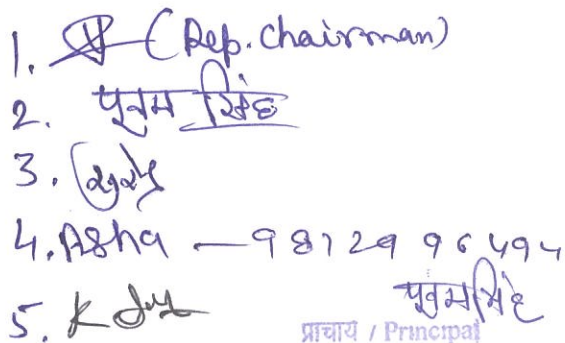 1. (Dep. Chairman)
2. पूनम सिंह
3.
4. Asha — 98129 96494
5. K
पूनम सिंह
प्राचार्य / Principal